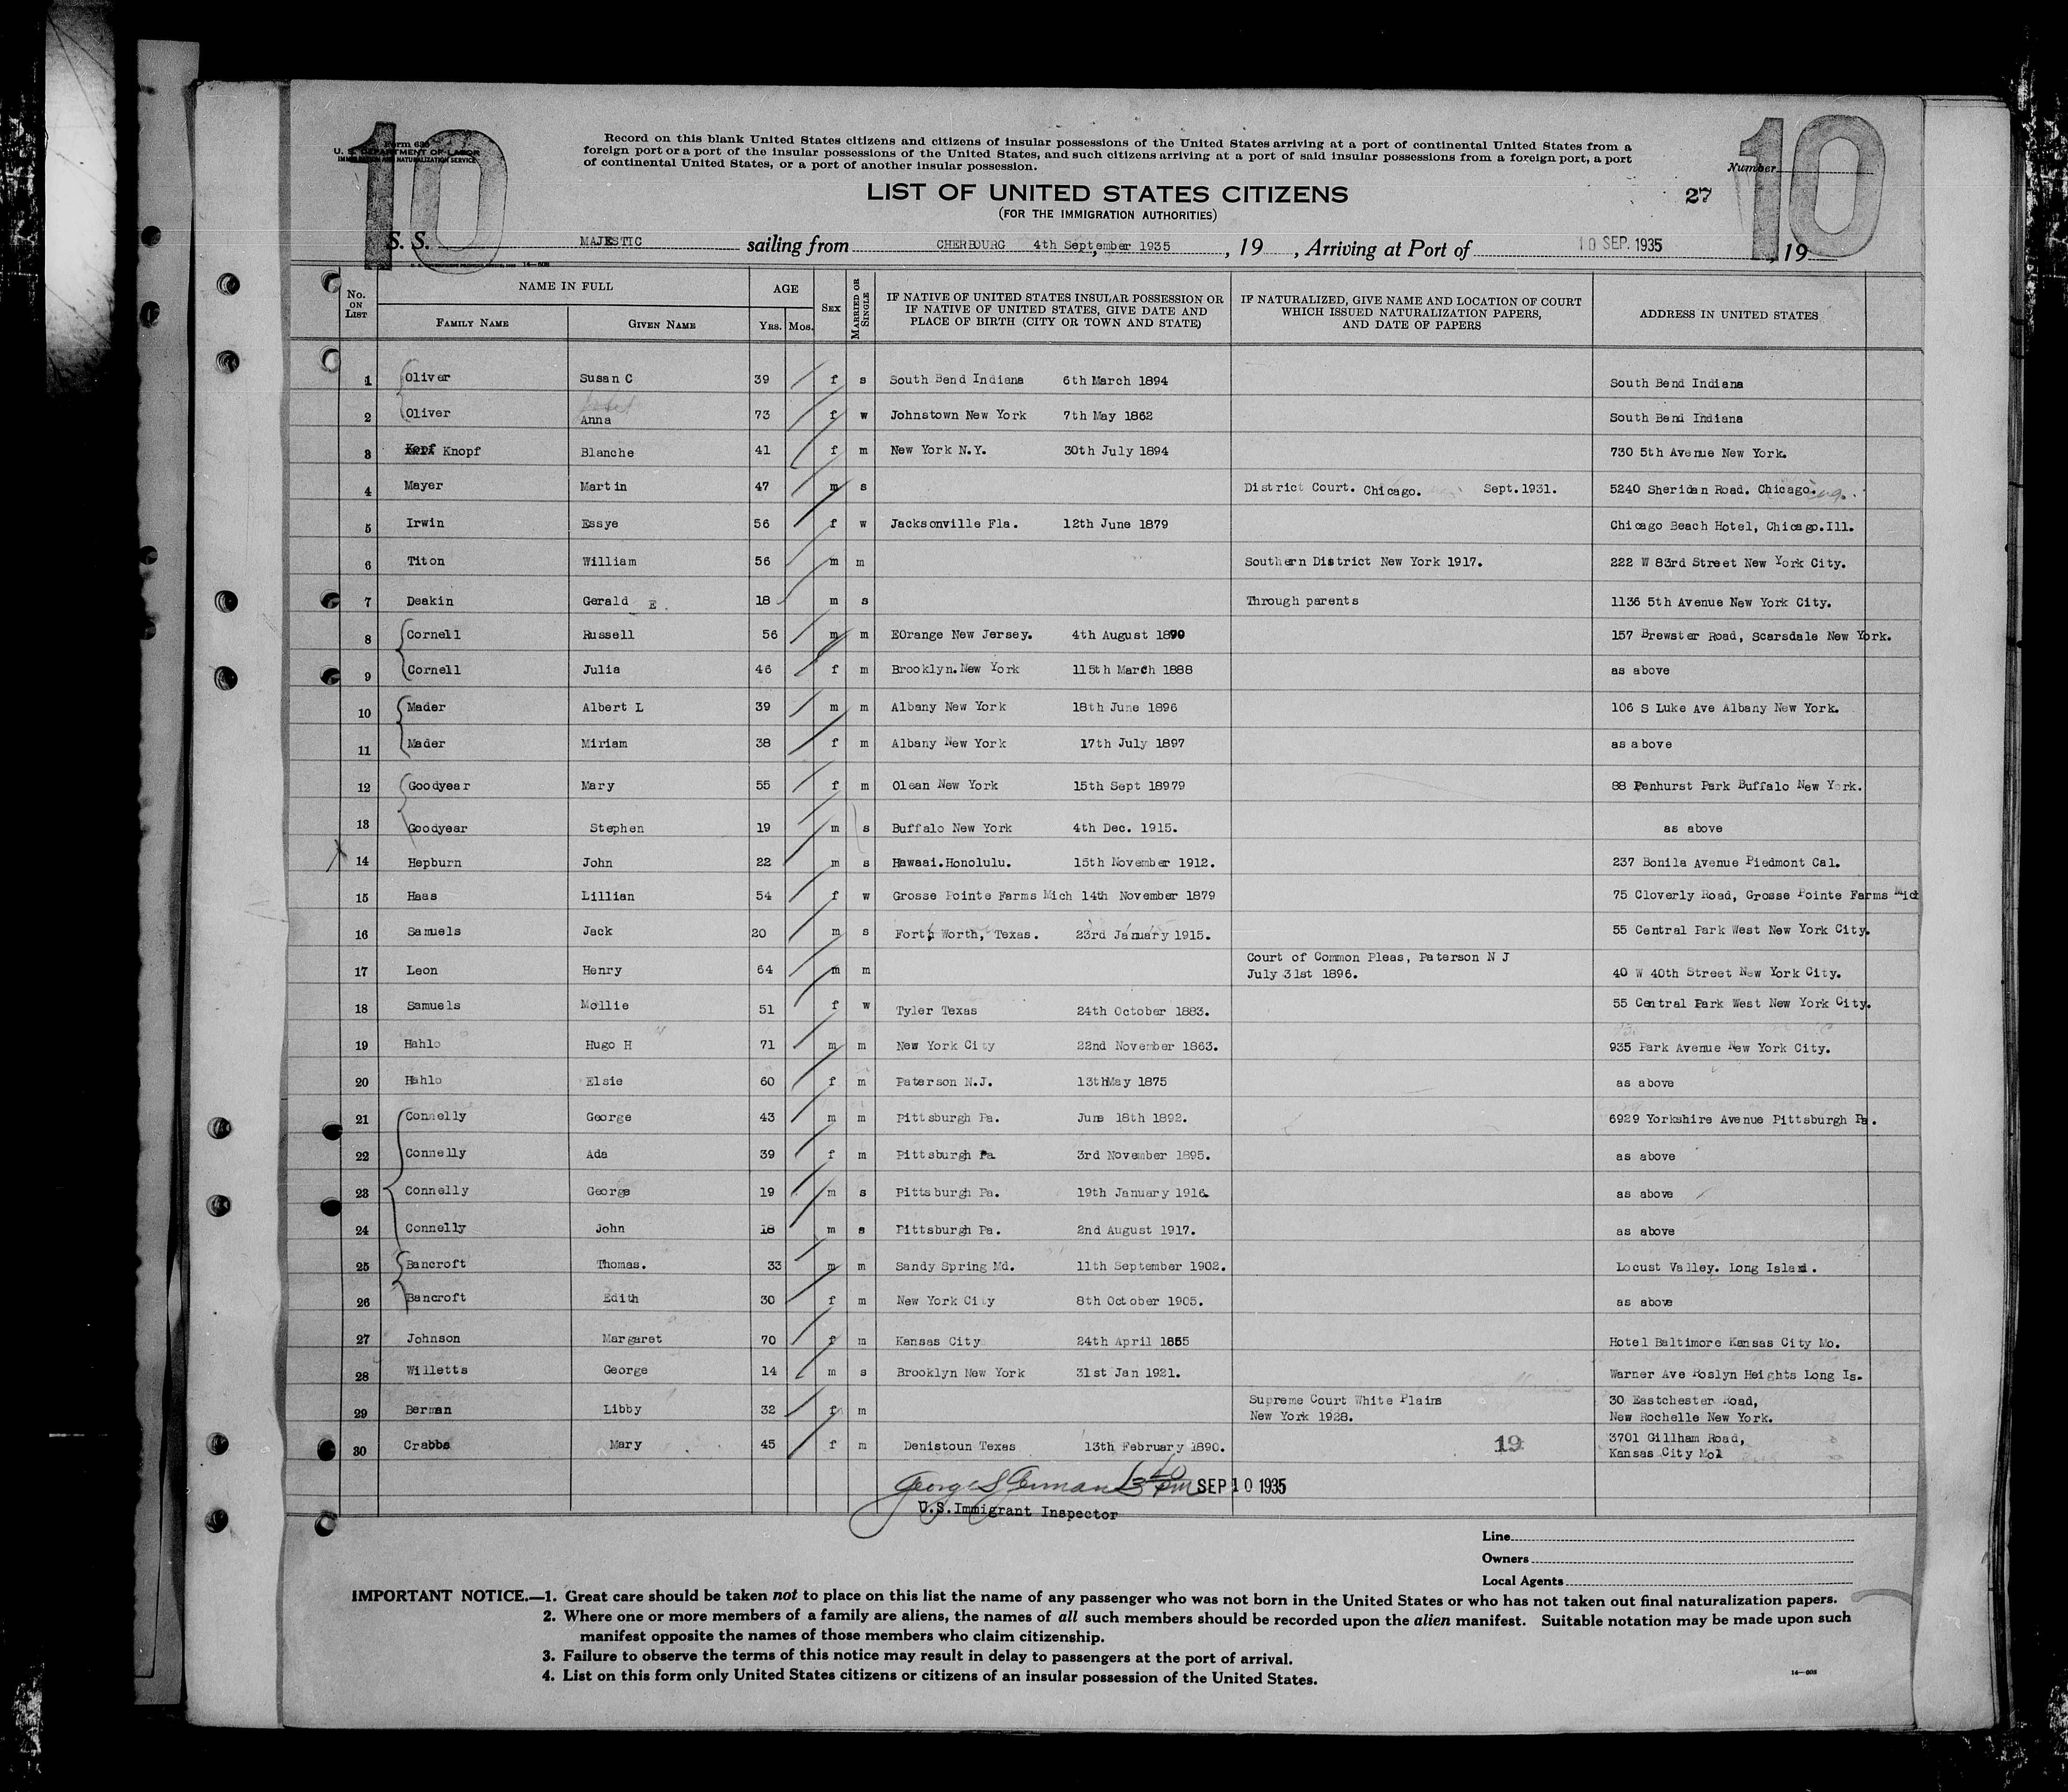 10
10
Form 630
U. S. DEPARTMENT OF LABOR
IMMIGRATION AND NATURALIZATION SERVICE
Record on this blank United States citizens and citizens of insular possessions of the United States arriving at a port of continental United States from a
foreign port or a port of the insular possessions of the United States, and such citizens arriving at a port of said insular possessions from a foreign port, a port
of continental United States, or a port of another insular possession.
Number
LIST OF UNITED STATES CITIZENS
27
(FOR THE IMMIGRATION AUTHORITIES)
S. S. MAJESTIC sailing from CHERBOURG 4th September 1935, 19 , Arriving at Port of 10 SEP. 1935, 19
No. ON LIST NAME IN FULL AGE SEX MARRIED OR SINGLE IF NATIVE OF UNITED STATES INSULAR POSSESSION OR IF NATIVE OF UNITED STATES, GIVE DATE AND PLACE OF BIRTH (CITY OR TOWN AND STATE) IF NATURALIZED, GIVE NAME AND LOCATION OF COURT WHICH ISSUED NATURALIZATION PAPERS, AND DATE OF PAPERS ADDRESS IN UNITED STATES
FAMILY NAME GIVEN NAME YRS. MOS.
1 Oliver Susan C 39 f s South Bend Indiana 6th March 1894 South Bend Indiana
2 Oliver Anna 73 f w Johnstown New York 7th May 1862 South Bend Indiana
3 Kopf Knopf Blanche 41 f m New York N.Y. 30th July 1894 730 5th Avenue New York.
4 Mayer Martin 47 m s District Court. Chicago. Sept.1931. 5240 Sheridan Road. Chicago.
5 Irwin Essye 56 f w Jacksonville Fla. 12th June 1879 Chicago Beach Hotel, Chicago.Ill.
6 Titon William 56 m m Southern District New York 1917. 222 W 83rd Street New York City.
7 Deakin Gerald E. 18 m s Through parents 1136 5th Avenue New York City.
8 Cornell Russell 56 m m EOrange New Jersey. 4th August 1890 157 Brewster Road, Scarsdale New York.
9 Cornell Julia 46 f m Brooklyn.New York 115th March 1888 as above
10 Mader Albert L 39 m m Albany New York 18th June 1896 106 S Luke Ave Albany New York.
11 Mader Miriam 38 f m Albany New York 17th July 1897 as above
12 Goodyear Mary 55 f m Olean New York 15th Sept 18979 88 Penhurst Park Buffalo New York.
13 Goodyear Stephen 19 m s Buffalo New York 4th Dec. 1915. as above
14 Hepburn John 22 m s Hawaai.Honolulu. 15th November 1912. 237 Bonila Avenue Piedmont Cal.
15 Haas Lillian 54 f w Grosse Pointe Farms Mich 14th November 1879 75 Cloverly Road, Grosse Pointe Farms Mich
16 Samuels Jack 20 m s Forth Worth, Texas. 23rd January 1915. 55 Central Park West New York City.
17 Leon Henry 64 m m Court of Common Pleas, Paterson N J
July 31st 1896. 40 W 40th Street New York City.
18 Samuels Mollie 51 f w Tyler Texas 24th October 1883. 55 Central Park West New York City.
19 Hahlo Hugo H 71 m m New York City 22nd November 1863. 935 Park Avenue New York City.
20 Hahlo Elsie 60 f m Paterson N.J. 13thMay 1875 as above
21 Connelly George 43 m m Pittsburgh Pa. June 18th 1892. 6929 Yorkshire Avenue Pittsburgh Pa.
22 Connelly Ada 39 f m Pittsburgh Pa 3rd November 1895. as above
23 Connelly George 19 m s Pittsburgh Pa. 19th January 1916. as above
24 Connelly John 18 m s Pittsburgh Pa. 2nd August 1917. as above
25 Bancroft Thomas. 33 m m Sandy Spring Md. 11th September 1902. Locust Valley. Long Island.
26 Bancroft Edith 30 f m New York City 8th October 1905. as above
27 Johnson Margaret 70 f m Kansas City 24th April 1865 Hotel Baltimore Kansas City Mo.
28 Willetts George 14 m s Brooklyn New York 31st Jan 1921. Warner Ave Roslyn Heights Long Is.
29 Berman Libby 32 f m Supreme Court White Plains
New York 1928. 30 Eastchester Road,
New Rochelle New York.
30 Crabbs Mary 45 f m Denistoun Texas 13th February 1890. 19 3701 Gillham Road,
Kansas City Mol
SEP 10 1935
U.S.Immigrant Inspector
Line
Owners
Local Agents
IMPORTANT NOTICE.—1. Great care should be taken not to place on this list the name of any passenger who was not born in the United States or who has not taken out final naturalization papers.
2. Where one or more members of a family are aliens, the names of all such members should be recorded upon the alien manifest. Suitable notation may be made upon such
manifest opposite the names of those members who claim citizenship.
3. Failure to observe the terms of this notice may result in delay to passengers at the port of arrival.
4. List on this form only United States citizens or citizens of an insular possession of the United States.
14—608